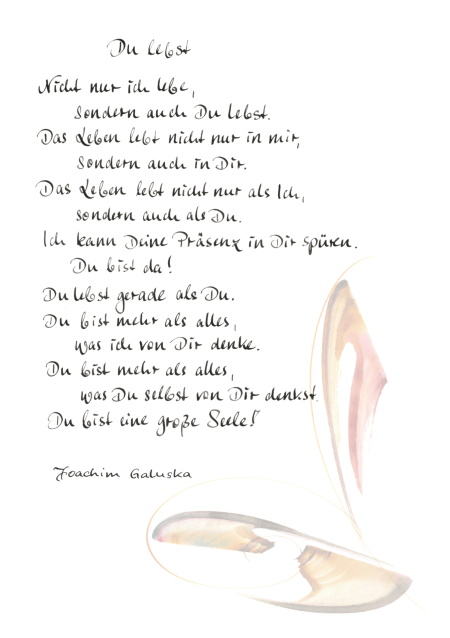 Du lebst
Nicht nur ich lebe,
sondern auch Du lebst.
Das Leben lebt nicht nur in mir,
sondern auch in Dir.
Das Leben lebt nicht nur als Ich,
sondern auch als Du.
Ich kann Deine Präsenz in Dir spüren.
Du bist da!
Du lebst gerade als Du.
Du bist mehr als alles,
was ich von Dir denke.
Du bist mehr als alles,
was Du selbst von Dir denkst.
Du bist eine große Seele!
Joachim Galuska